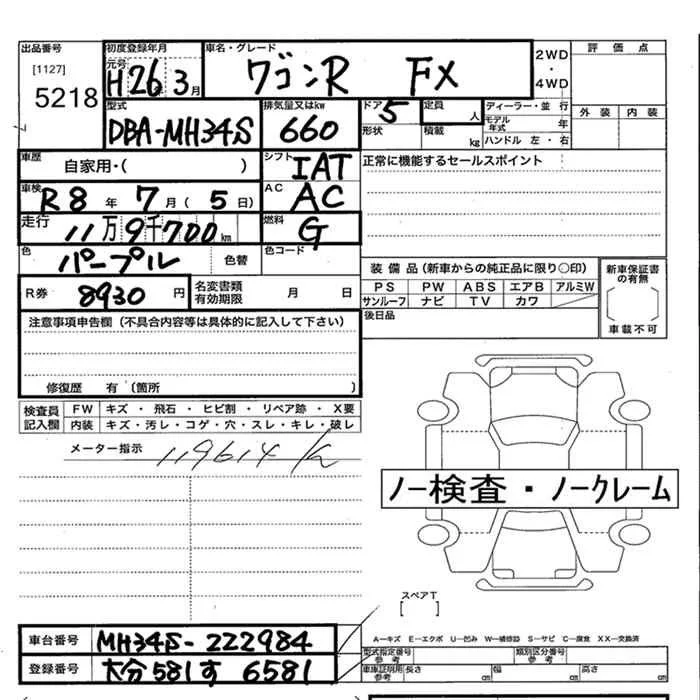 出品番号 [1127] 5218
初度登録年月 元号 H26 3月
車名・グレード ワゴンR FX
2WD・4WD
評価点
外装 内装
型式 DBA-MH34S
排気量又はkw 660
ドア 5
形状
定員 人
積載 kg
ディーラー・並行
モデル年式 年
ハンドル 左・右
車歴 自家用・( )
シフト IAT
正常に機能するセールスポイント
車検 R8年 7月( 5日)
AC AC
走行 11万9千700km
燃料 G
色 パープル 色替
色コード
R券 8930円
名変書類有効期限 月 日
装備品(新車からの純正品に限り○印)
PS PW ABS エアB アルミW
サンルーフ ナビ TV カワ
新車保証書の有無
車載不可
後日品
注意事項申告欄(不具合内容等は具体的に記入して下さい)
修復歴 有(箇所 )
検査員記入欄
FW キズ・飛石・ヒビ割・リペア跡・X要
内装 キズ・汚レ・コゲ・穴・スレ・キレ・破レ
メーター指示 119614 K
ノー検査・ノークレーム
スペアT
[ ]
車台番号 MH34S-222984
登録番号 大分581す6581
A―キズ E―エクボ U―凹み W―補修跡 S―サビ C―腐食 XX―交換済
型式指定番号 参考
類別区分番号 参考
車庫証明用 参考 長さ cm 幅 cm 高さ cm